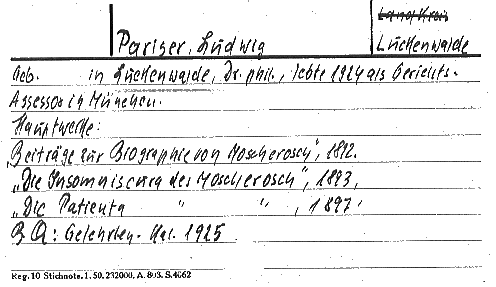 Landkreis
Pariser, Ludwig
Luckenwalde
Geb. in Luckenwalde, Dr. phil., lebte 1924 als Gerichts-
Assessor in München.
Hauptwerke:
„Beiträge zur Biographie von Moscherosch", 1892.
„Die Insomnis cura des Moscherosch", 1893,
„Die Patientia " " , 1897.
BQ: Gelehrten-Kal. 1925
Reg. 10 Stichnote. 1. 50. 232000. A. 803. S. 4062